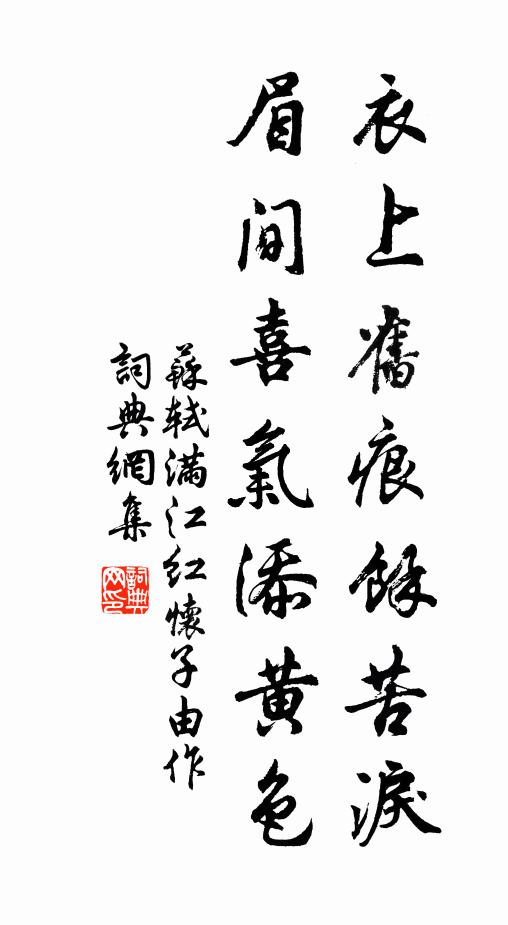 衣上舊痕餘苦淚
眉間喜氣添黃色
蘇軾滿江紅懷子由作
詞典網集
詞典网印